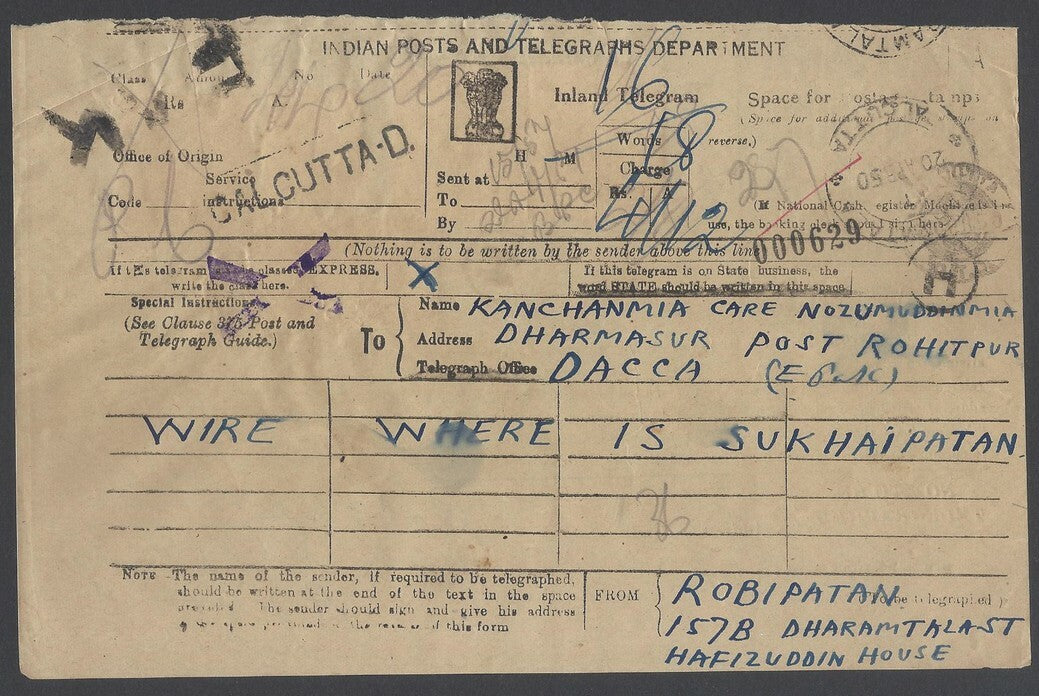 INDIAN POSTS AND TELEGRAPHS DEPARTMENT
Class No Date
Rs A.
Inland Telegram
Space for
(Spic for
reverse.)
16
Words 18
Charge
Rs. A
4/12
H M
Sent at
To
By
Office of Origin
Service
Code instructions
CALCUTTA-D.
CALCUTTA
20
50
(If National Cash
use, the
000629
(Nothing is to be written by the sender above this line
If this telegram EXPRESS,
write the here.
X
If this telegram is on State business, the
word STATE should be written in this space
H
Special Instructions
(See Clause 375 Post and
Telegraph Guide.)
To
Name KANCHANMIA CARE NOZUMUDDINMIA
Address DHARMASUR POST ROHITPUR
Telegraph Office DACCA (E Pak)
WIRE WHERE IS SUKHAIPATAN
NOTE -The name of the sender, if required to be telegraphed,
should be written at the end of the text in the space
The sender should sign and give his address
of this form
FROM
ROBIPATAN
be telegraphed)
157B DHARAMTALA ST
HAFIZUDDIN HOUSE